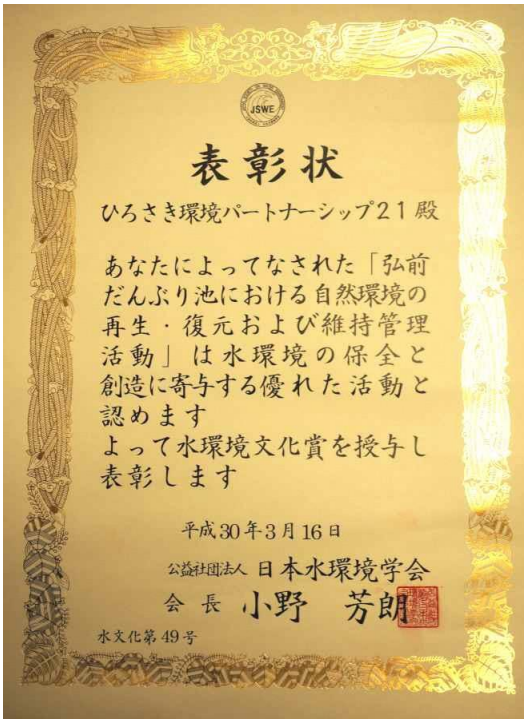 JSWE
表彰状
ひろさき環境パートナーシップ21殿
あなたによってなされた「弘前
だんぶり池における自然環境の
再生・復元および維持管理
活動」は水環境の保全と
創造に寄与する優れた活動と
認めます
よって水環境文化賞を授与し
表彰します
平成30年3月16日
公益社団法人 日本水環境学会
会長 小野 芳朗
水文化第49号